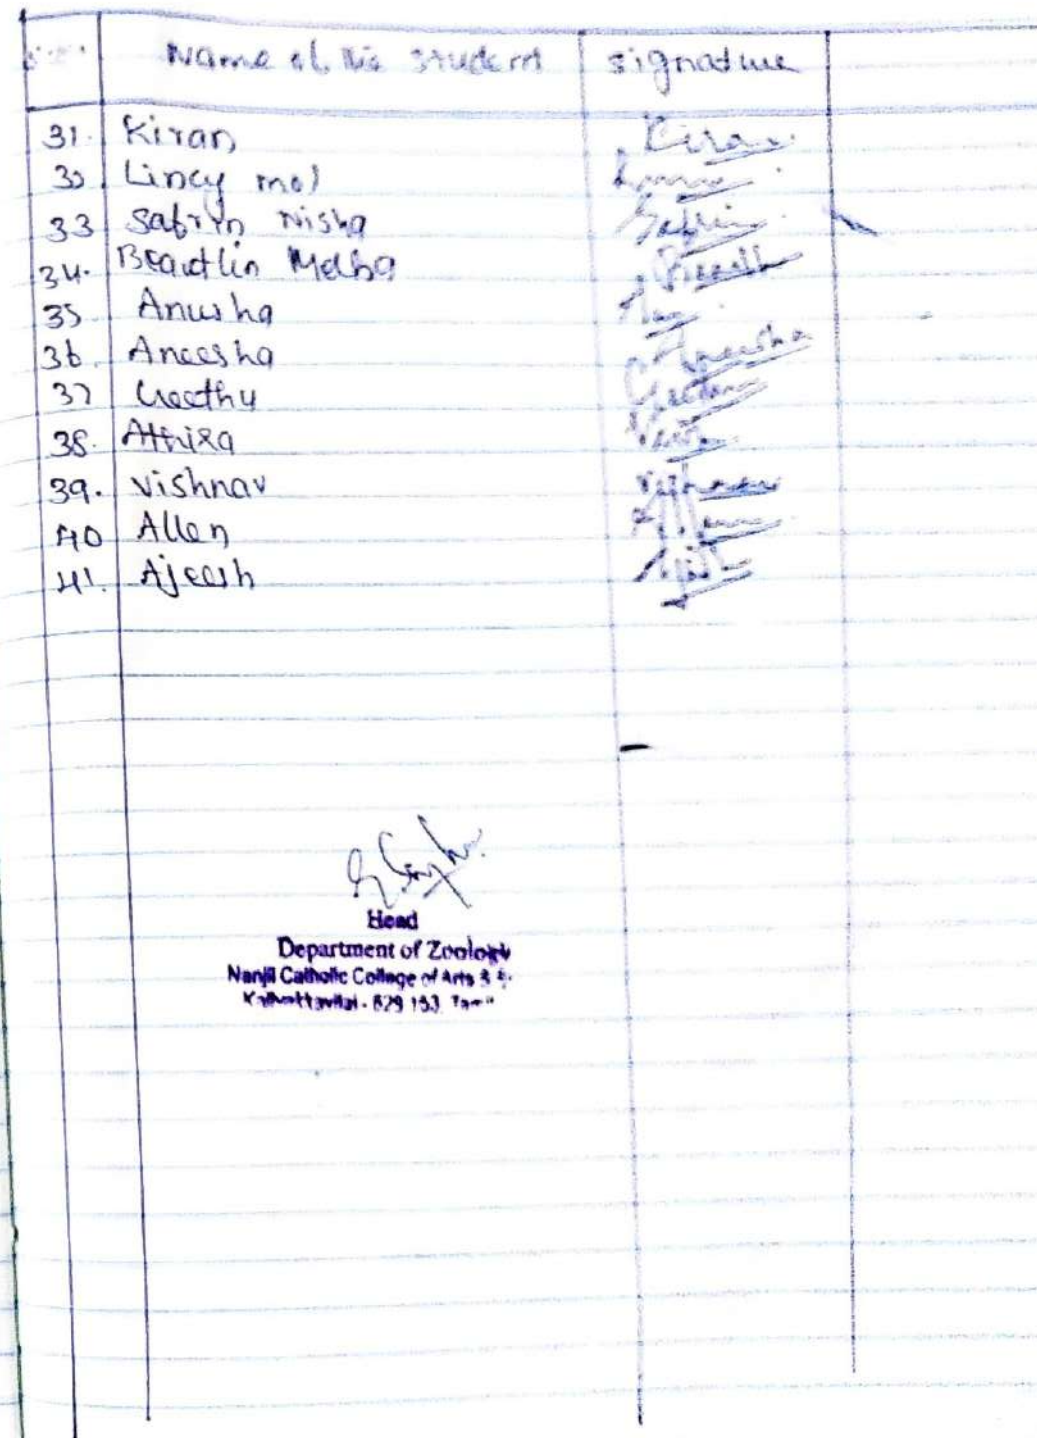 Name of the student signature
31. Kiran Kiran
32 Lincy mol
33 Safrin Nisha Safrin
34. Beautlin Melba
35 Anusha
36. Aneesha Aneesha
37 Geethu
38. Athira
39. Vishnav Vishnav
40 Allen
41. Ajeesh
Head
Department of Zoology
Nanjil Catholic College of Arts &
Kaliyakkavilai - 629 153. Tamil